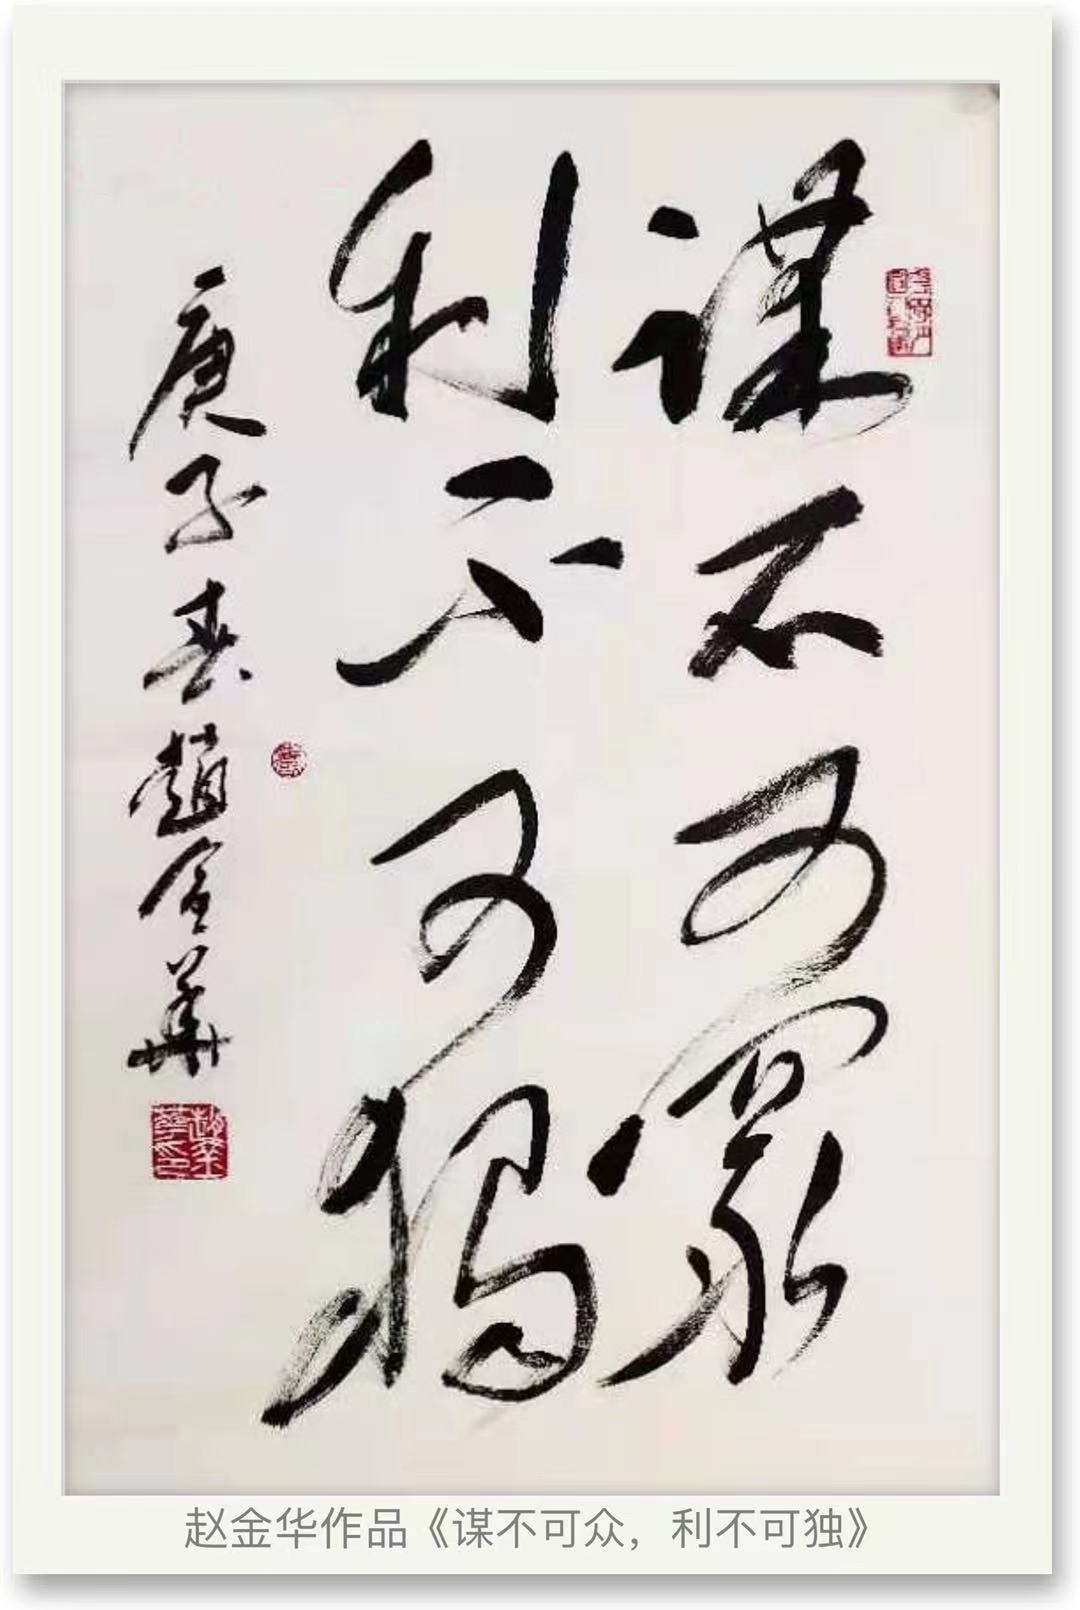 谋不可众
利不可独
庚子春趙金華
赵金华作品《谋不可众，利不可独》